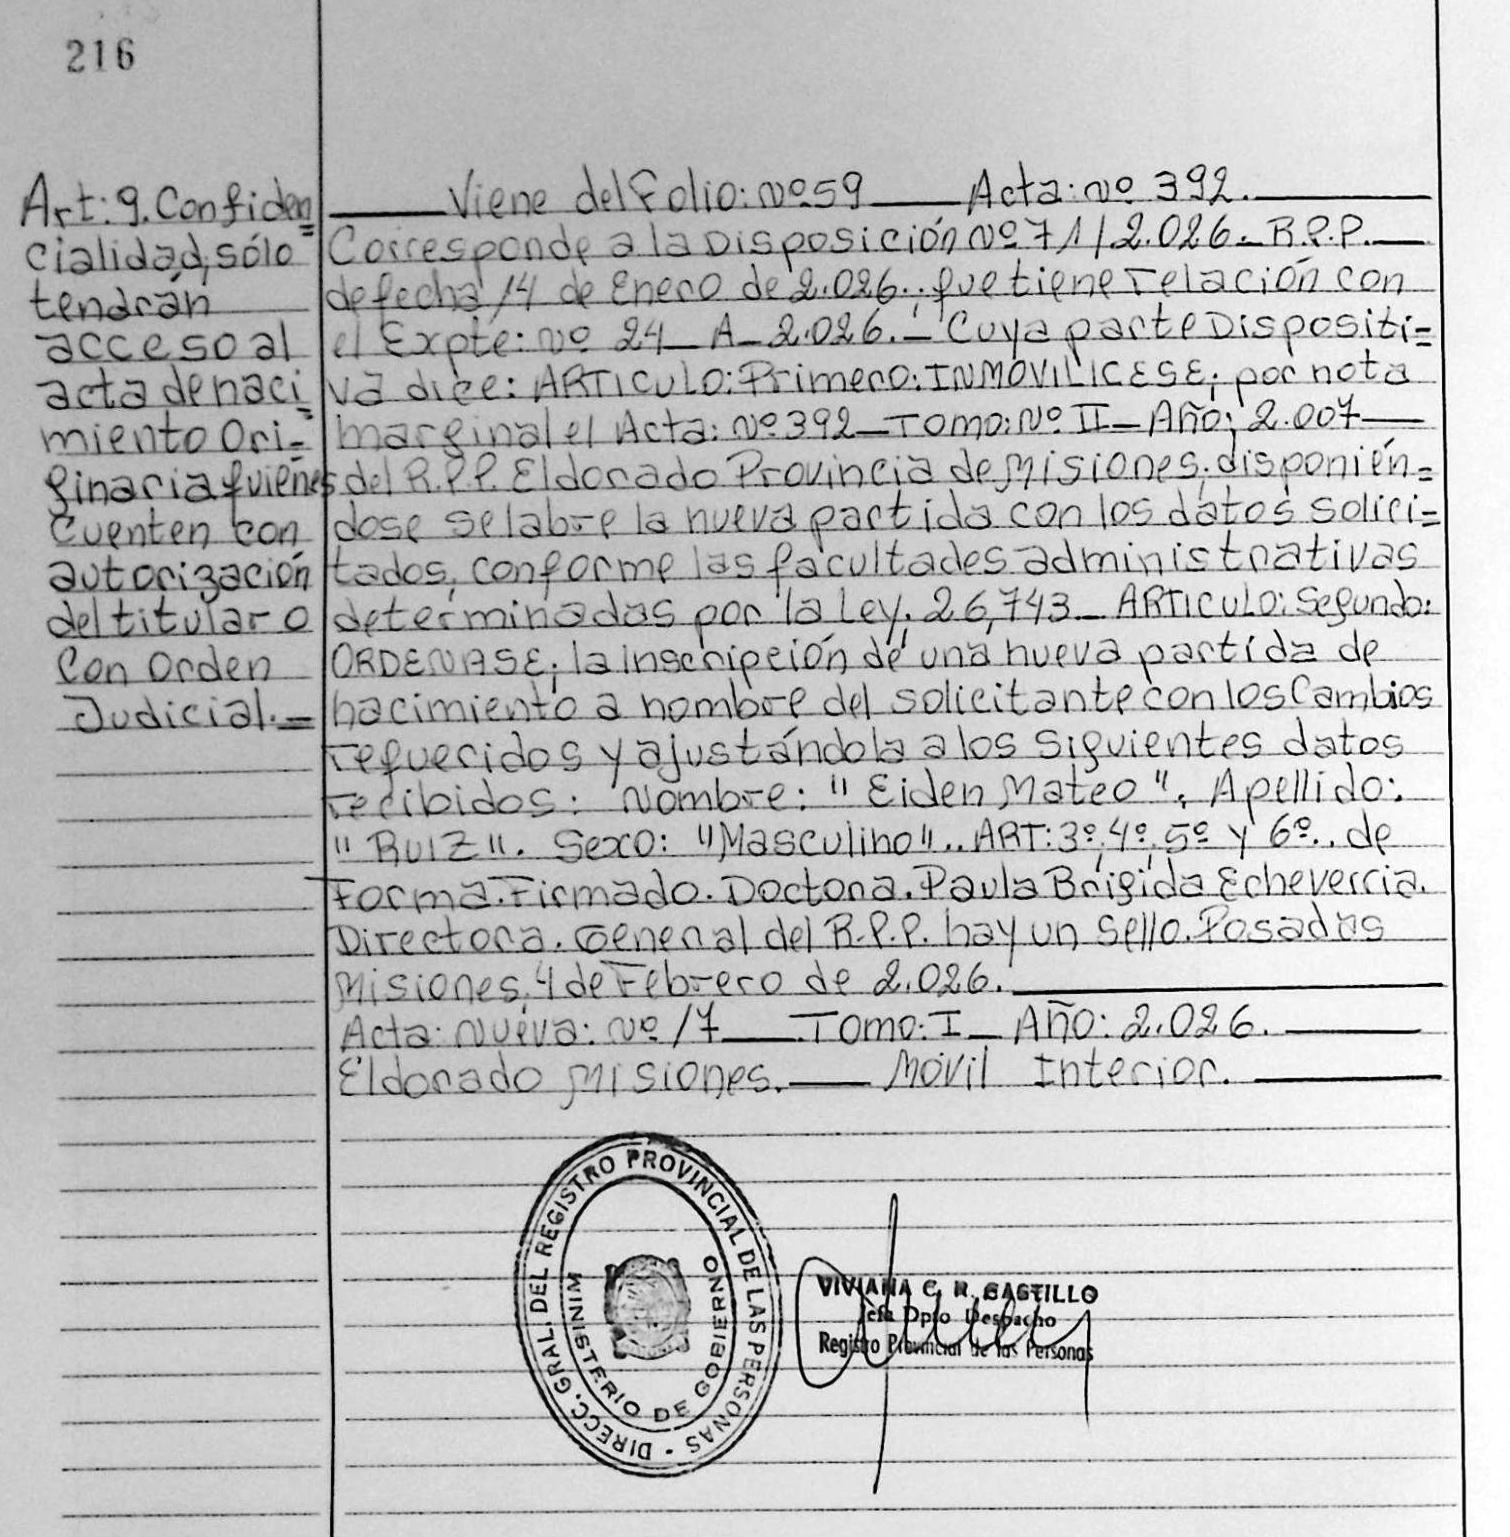 216
Art: 9. Confiden=
cialidad, sólo
tendrán
acceso al
acta de naci=
miento Ori=
ginaria quienes
Cuenten con
autorización
del titular o
Con Orden
Judicial.=
Viene del Folio: Nº 59 Acta: Nº 392.
Corresponde a la Disposición Nº 71/2.026. R.P.P.
de fecha 14 de Enero de 2.026.; que tiene relación con
el Expte: Nº 24 A-2.026.- Cuya parte Dispositi=
va dice: ARTICULO: Primero: INMOVILICESE; por nota
marginal el Acta: Nº 392 - Tomo: Nº II - Año; 2.007
del R.P.P. Eldorado Provincia de Misiones; disponién=
dose se labre la nueva partida con los datos solici=
tados, conforme las facultades administrativas
determinadas por la Ley. 26,743 - ARTICULO: Segundo:
ORDENASE; la inscripción de una nueva partida de
nacimiento a nombre del solicitante con los Cambios
requeridos y ajustándola a los siguientes datos
recibidos: Nombre: "Eiden Mateo", Apellido:
"RUIZ". Sexo: "Masculino".. ART: 3º, 4º, 5º y 6º.. de
Forma. Firmado. Doctora. Paula Brigida Echeverria.
Directora. General del R.P.P. hay un sello. Posadas
Misiones, 4 de Febrero de 2.026.
Acta: Nueva: Nº 17 Tomo: I Año: 2.026.
Eldorado Misiones. Móvil Interior.
DIRECC. GRAL. DEL REGISTRO PROVINCIAL DE LAS PERSONAS -
MINISTERIO DE GOBIERNO
VIVIANA C. R. CASTILLO
Jefa Dpto Despacho
Registro Provincial de las Personas